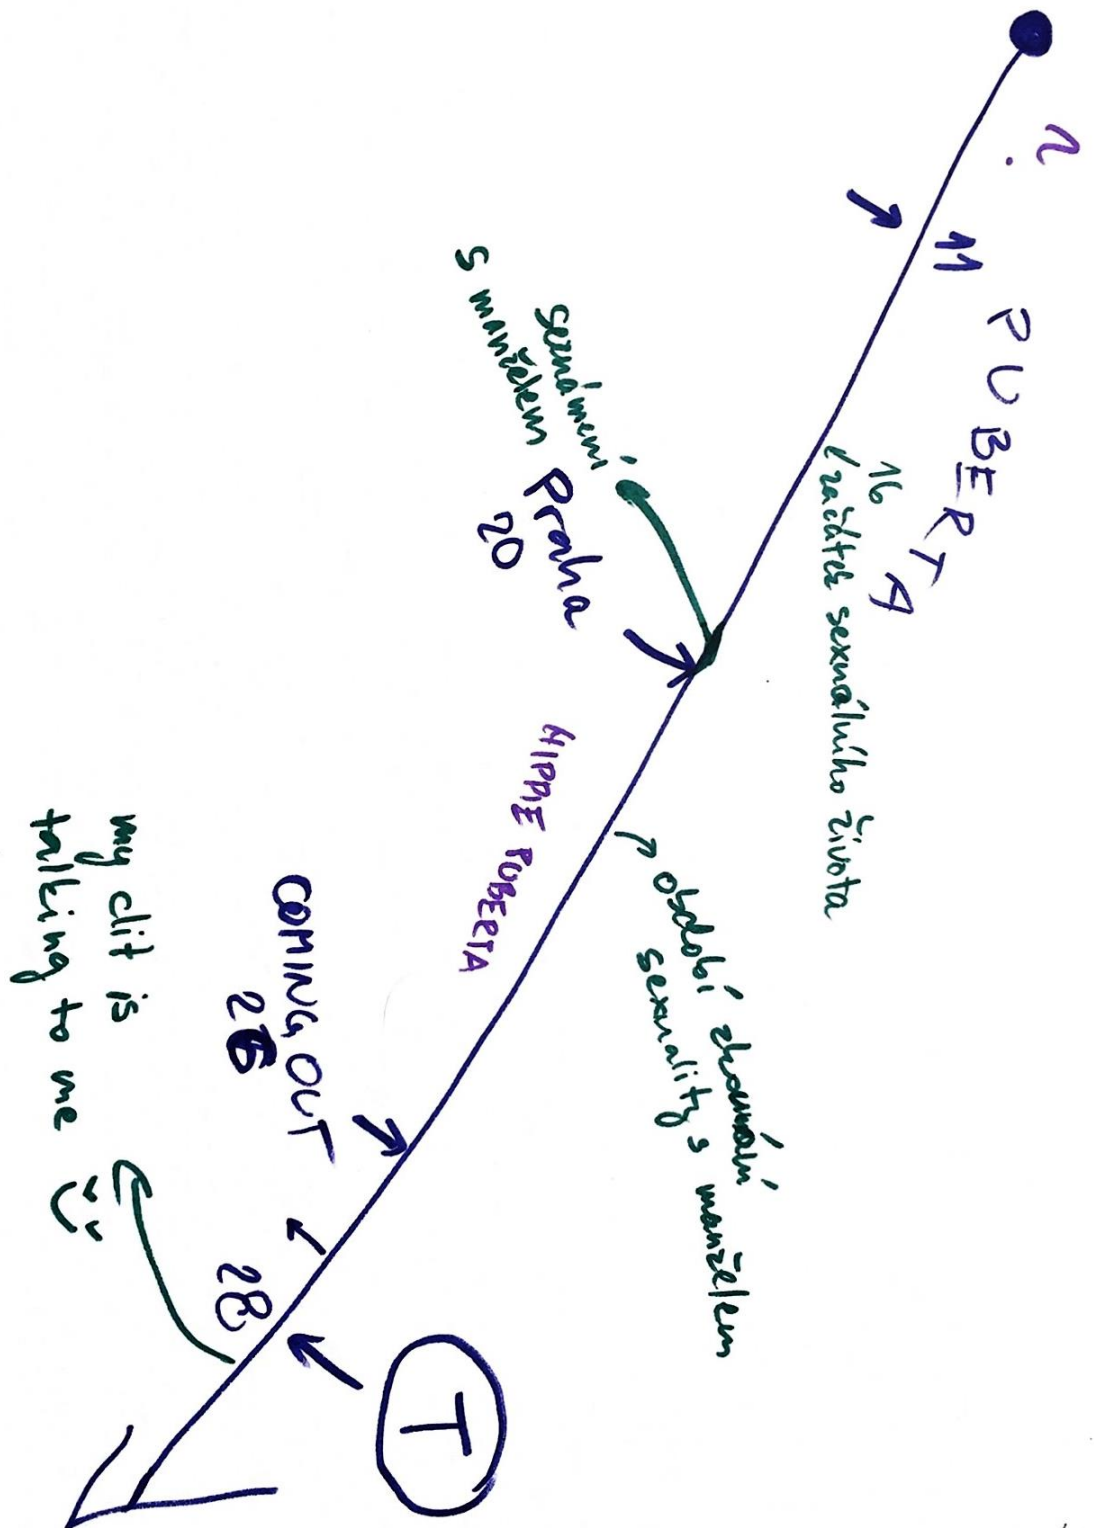 ?
11
PUBERTA
16
začátek sexuálního života
seznámení
s manželem
Praha
20
HIPPIE PUBERTA
období zkoumání
sexuality s manželem
COMING OUT
26
28
T
my clit is
talking to me